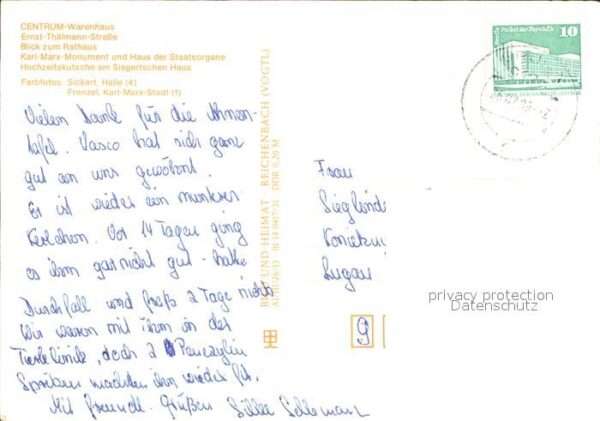 CENTRUM-Warenhaus
Ernst-Thälmann-Straße
Blick zum Rathaus
Karl-Marx-Monument und Haus der Staatsorgane
Hochzeitskutsche am Siegertschen Haus
Farbfotos: Sickert, Halle (4)
Frenzel, Karl-Marx-Stadt (1)
Vielen Dank für die Ahnen-
tafel. Vasco hat sich ganz
gut an uns gewöhnt.
Er ist wieder ein munteres
Kerlchen. Vor 14 Tagen ging
es ihm gar nicht gut - hatte
Durchfall und fraß 2 Tage nichts
Wir waren mit ihm in der
Tierklinik, doch 2 Penicylin
Spritzen machten ihn wieder fit.
Mit freundl. Grüßen
BILD UND HEIMAT REICHENBACH (VOGTL)
01 14 0417/32 DDR 0,20 M
Berlin Palast der Republik
10
Frau
Sieglinde
Lugau
9
privacy protection
Datenschutz